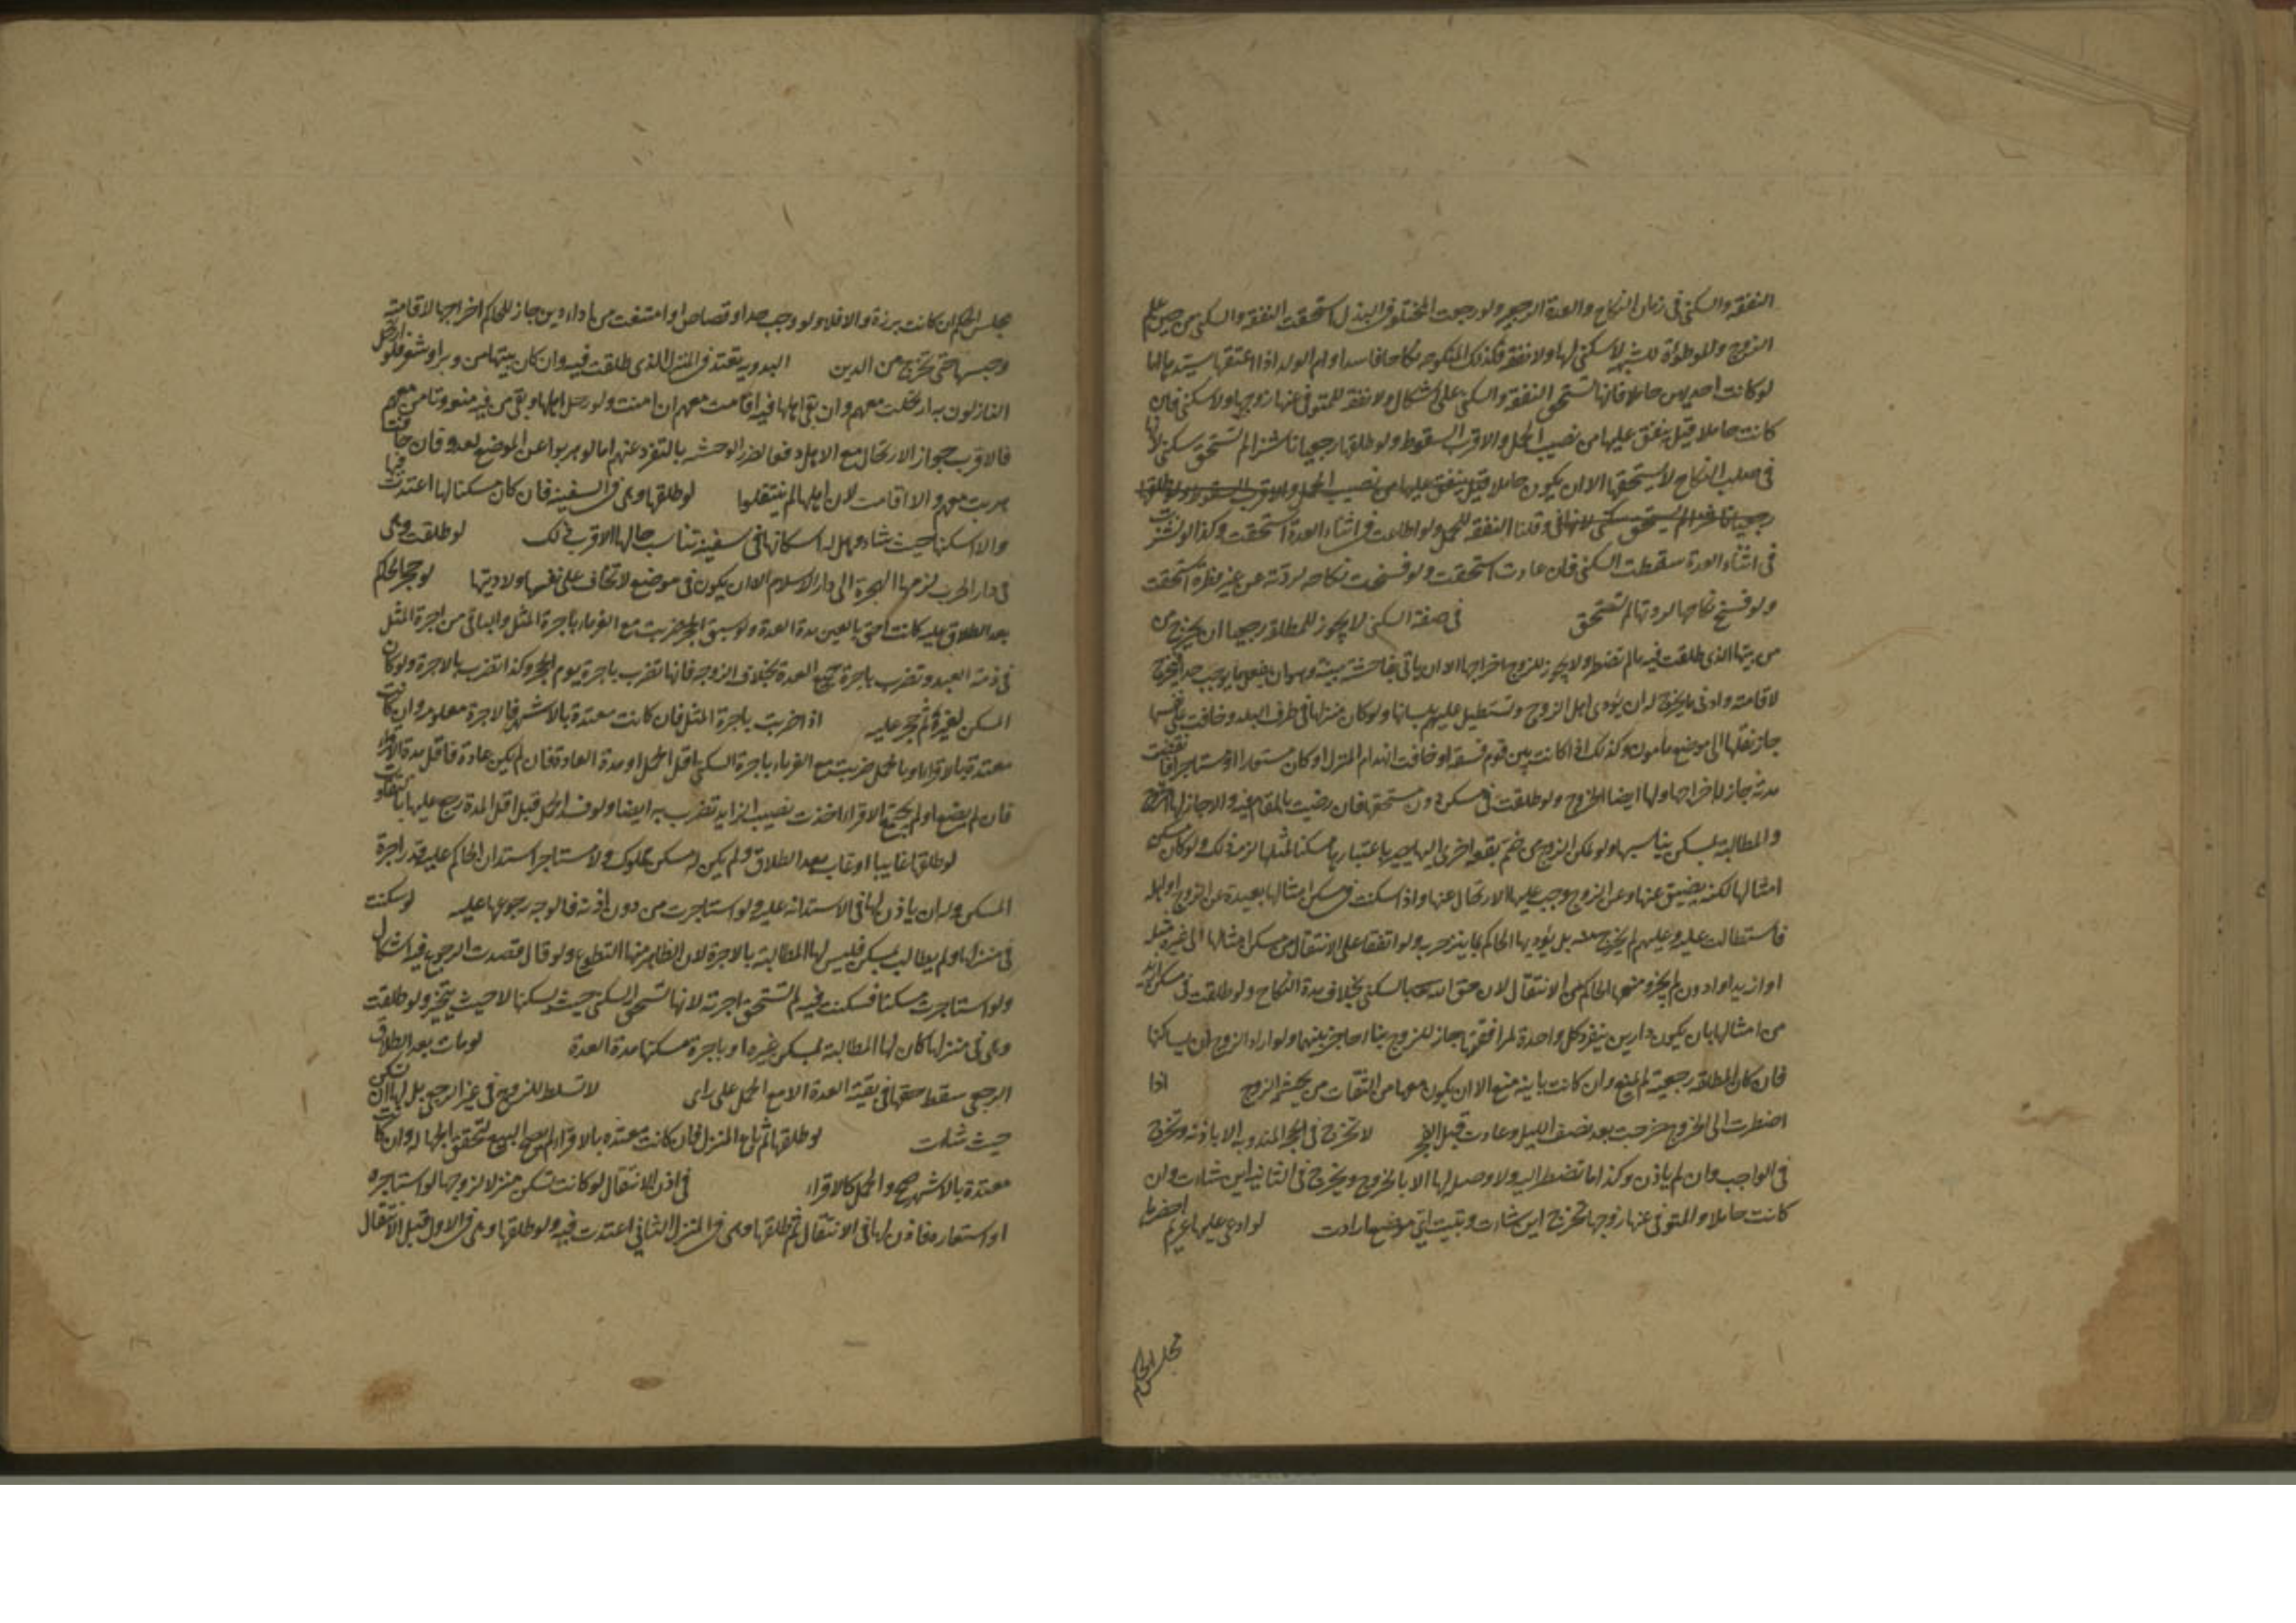 النفقة والسكنى فى زمان النكاح والعدة الرجعية ولو رجعت المختلعة فى البذل استحقت النفقة والسكنى من حين علم
الزوج والموطوءة للشبهة لا سكنى لها ولا نفقة وكذلك المنكوحة نكاحا فاسدا او ام الولد اذا اعتقها سيدها اما
لو كانت احديهن حاملا فانها تستحق النفقة والسكنى على اشكال ولا نفقة للمتوفى عنها زوجها ولا سكنى فان
كانت حاملا قيل ينفق عليها من نصيب الحمل والاقرب السقوط ولو طلقها رجعيا ناشزا لم تستحق سكنى لانها
فى صلب النكاح لا يستحقها الا ان يكون حاملا قيل ينفق عليها من نصيب الحمل والاقرب السقوط ولو طلقها
رجعيا ناشزا لم يستحق سكنى لانها فى وقلنا النفقة للحمل ولو اطاعت فى اثناء العدة استحقت وكذا لو نشزت
فى اثناء العدة سقطت السكنى فان عادت استحقت ولو فسخت نكاحه لردته عن غير فطرة استحقت
ولو فسخ نكاحها لردتها لم تستحق فى صفة السكنى لا يجوز للمطلقة رجعيا ان يخرج من
من بيتها الذى طلقت فيه ما لم تضطر ولا يجوز للزوج اخراجها الا ان ياتى بفاحشة مبينة وهو ان يفعل ما يوجب حدا فيخرج
لاقامته وادنى ما يخرج له ان يؤذى اهل الزوج وتستطيل عليهم بلسانها ولو كان منزلها فى طرف البلد وخافت على نفسها
جاز نقلها الى موضع مأمون وكذلك اذا كانت بين قوم فسقة او خافت انهدام المنزل او كان مستعارا او مستاجرا فانقضت
مدته جاز له اخراجها ولها ايضا الخروج ولو طلقت فى مسكن دون مستحقها فان رضيت بالمقام فيه والا جاز لها الخروج
والمطالبة بمسكن يناسبها ولو تمكن الزوج من ضم بقعة اخرى اليها يصير باعتبارها مسكنا لمثلها لزمه ذلك ولو كان مسكن
امثالها لكنه يضيق عنها وعن الزوج وجب عليها الارتحال عنها واذا سكنت فى مسكن امثالها بعيدة عن الزوج او اهله
فاستطالت عليه وعليهم لم يخرج بل يؤدبها الحاكم بما ينزجر به ولو اتفقا على الانتقال من مسكن امثالها الى غيره مثله
او ازيد او ادون لم يجز ومنعها الحاكم من الانتقال لان حق الله بالسكنى بخلاف مدة النكاح ولو طلقت فى مسكن ازيد
من امثالها بان يكون دارين ينفرد كل واحدة لمرافقها جاز للزوج بناء حاجز بينهما ولو اراد الزوج ان يساكنها
فان كان المطلقة رجعية لم يمنع وان كانت باينة منع الا ان يكون معها من الثقات من يحتشم الزوج اذا
اضطرت الى الخروج خرجت بعد نصف الليل وعادت قبل الفجر لا تخرج فى الحج المندوب الا باذنه وتخرج
فى الواجب وان لم ياذن وكذا ما تضطر اليه ولا وصلة لها الا بالخروج ويخرج فى الثانية اين شاءت وان
كانت حاملا والمتوفى عنها زوجها تخرج اين شاءت وتبيت اى موضع ارادت لو ادعى عليها غريم احضرها
مجلس الحكم
مجلس الحكم ان كانت برزة والا فلا ولو وجب حد او قصاص او امتنعت من اداء دين جاز للحاكم اخراجها لاقامته
وحبسها حتى تخرج من الدين البدوية تعتد فى المنزل الذى طلقت فيه وان كان بيتها من وبر او شعر فلو ارتحل
النازلون به ارتحلت معهم وان بقى اهلها فيه اقامت معهم ان امنت ولو رحل اهلها وبقى من فيه منعة وتامن معهم
فالاقرب جواز الارتحال مع الاهل دفعا لضرر الوحشة بالتفرد عنهم اما لو هربوا عن الموضع لعدو فان خافت
هربت معهم والا اقامت لان اهلها لم ينتقلوا لو طلقها وهى فى السفينة فان كان مسكنا لها اعتدت فيها
والا اسكنها حيث شاء وهل له اسكانها فى سفينة تناسب حالها الاقرب ذلك لو طلقت وهى
فى دار الحرب لزمها الهجرة الى دار الاسلام الا ان يكون فى موضع لا تخاف على نفسها ولا دينها لو حجر الحاكم
بعد الطلاق عليه كانت احق بالعين مدة العدة ولو سبق الحجر ضربت مع الغرماء باجرة المثل والباقى من اجرة المثل
فى ذمة العبد وتضرب باجرة جميع العدة بخلاف الزوجة فانها تضرب باجرة يوم الحجر وكذا تضرب بالاجرة ولو كان
المسكن لغيره ثم حجر عليه اذا ضربت باجرة المثل فان كانت معتدة بالاشهر فالاجرة معلومة وان كانت
معتدة بالاقراء او بالحمل ضربت مع الغرماء باجرة السكنى اقل الحمل او مدة العادة فان لم يكن عادة فاقل مدة الاقراء
فان لم تضع او لم يجتمع الاقراء اخذت نصيب الزايد تضرب به ايضا ولو فسد الحمل قبل اقل المدة رجع عليها بالتفاوت
لو طلقها غايبا او غاب بعد الطلاق ولم يكن له مسكن مملوك ولا مستاجر استدان الحاكم عليه قدر اجرة
المسكن وله ان ياذن لها فى الاستدانة عليه ولو استاجرت من دون اذنه فالوجه رجوعها عليه لو سكنت
فى منزلها ولم يطالب بمسكن فليس لها المطالبة بالاجرة لان الظاهر منها التطوع ولو قال قصدت الرجوع فيه اشكال
ولو استاجرت مسكنا فسكنت فيه لم تستحق اجرته لانها تستحق السكنى حيث يسكنها لا حيث يتخير ولو طلقت
وهى فى منزلها كان لها المطالبة بمسكن غيره او باجرة مسكنها مدة العدة لو مات بعد الطلاق
الرجعى سقط حقها فى بقية العدة الا مع الحمل على راى لا تسلط للزوج فى غير الرجعى بل لها ان تسكن
حيث شاءت لو طلقها ثم باع المنزل فان كانت معتدة بالاقراء لم يصح البيع لتحقق الجهالة وان كانت
معتدة بالاشهر صح والحمل كالاقراء فى اذن الانتقال لو كانت تسكن منزلا لزوجها لو استاجره
او استعاره فاذن لها فى الانتقال ثم طلقها وهى فى المنزل الثانى اعتدت فيه ولو طلقها وهى فى الاول قبل الانتقال